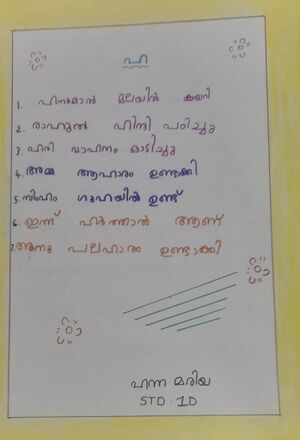 ഹ
1. ഹനുമാൻ മലയിൽ കയറി
2. രാഹുൽ ഹിന്ദി പഠിച്ചു
3. ഹരി വാഹനം ഓടിച്ചു
4. അമ്മ ആഹാരം ഉണ്ടാക്കി
5. സിംഹം ഗുഹയിൽ ഉണ്ട്
6. ഇന്ന് ഹർത്താൽ ആണ്
7. അനു പലഹാരം ഉണ്ടാക്കി
ഹന്ന മരിയ
STD - 1D